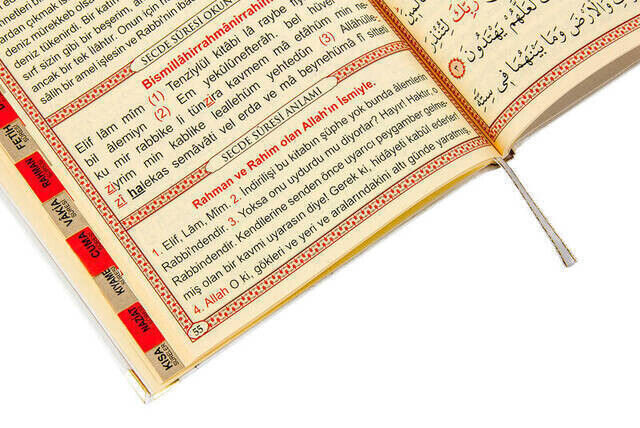 deniz mürekkep olsa
deniz tükenirdi. Bir katı
sırf sizin gibi bir beşerim, an
ancak bir tek ilâhtır. Onun için h
sâlih bir amel işlesin ve Rabbi'nin ibad
SECDE SÛRESİ OKUN
Bismillâhirrahmânirrahîm
Elif lâm mîm (1) Tenzîylül kitâbi lâ raybe
bil âlemiyn (2) Em yekûlûnefterâh. bel hüvel
ku mir rabbike li tünzira kavmen mâ etâhüm min ne
ziyrim min kablike leallehüm yehtedûn (3) Allâhülle
zî halekas semâvâti vel erda ve mâ beynehümâ fî sitteti
SECDE SÛRESİ ANLAMI
Rahman ve Rahim olan Allah'ın İsmiyle.
1. Elif, Lâm, Mîm. 2. İndirilişi bu kitabın şüphe yok bunda âlemlerin
Rabbi'ndendir. 3. Yoksa onu uydurdu mu diyorlar? Hayır! Haktır, o
Rabbindendir. Kendilerine senden önce uyarıcı peygamber gelme-
miş olan bir kavmi uyarasın diye! Gerek ki, hidâyeti kabul ederler!
4. Allah O ki, gökleri ve yeri ve aralarındakini altı günde yaratmış,
55
FETİH
RAHMAN
VAKIA
CUMA
KIYAME
NAZİAT
KISA
SURELER
رَبِّكَ لِتُنْذِرَ
لَعَلَّهُمْ يَهْتَدُونَ
وَالْأَرْضَ وَمَا بَيْنَهُمَا فِي سِتَّةِ